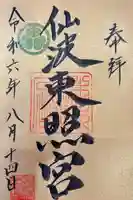 奉拝
仙波東照宮
令和六年八月十四日